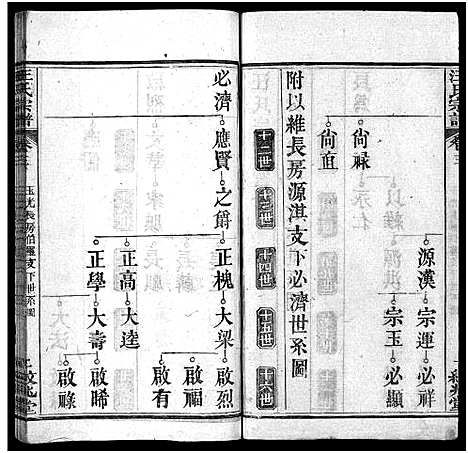 汪氏宗譜
卷三
源漢 宗運 必祥
宗玉 必顯
尚祿
尚直
附以維長房源淇支下必濟世系圖
十二世 十三世 十四世 十五世 十六世
必濟 應賢 之爵 正槐 大梁 啟烈
啟福
正高 大達 啟有
正學 大壽 啟晞
啟祿
汪氏宗譜
卷三